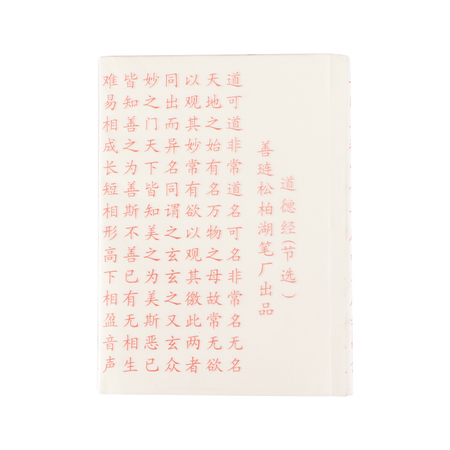 道德经(节选)
善琏松柏湖笔厂出品
道可道非常道名可名非常名无名
天地之始有名万物之母故常无欲
以观其妙常有欲以观其徼此两者
同出而异名同谓之玄玄之又玄众
妙之门天下皆知美之为美斯恶已
皆知善之为善斯不善已有无相生
难易相成长短相形高下相盈音声